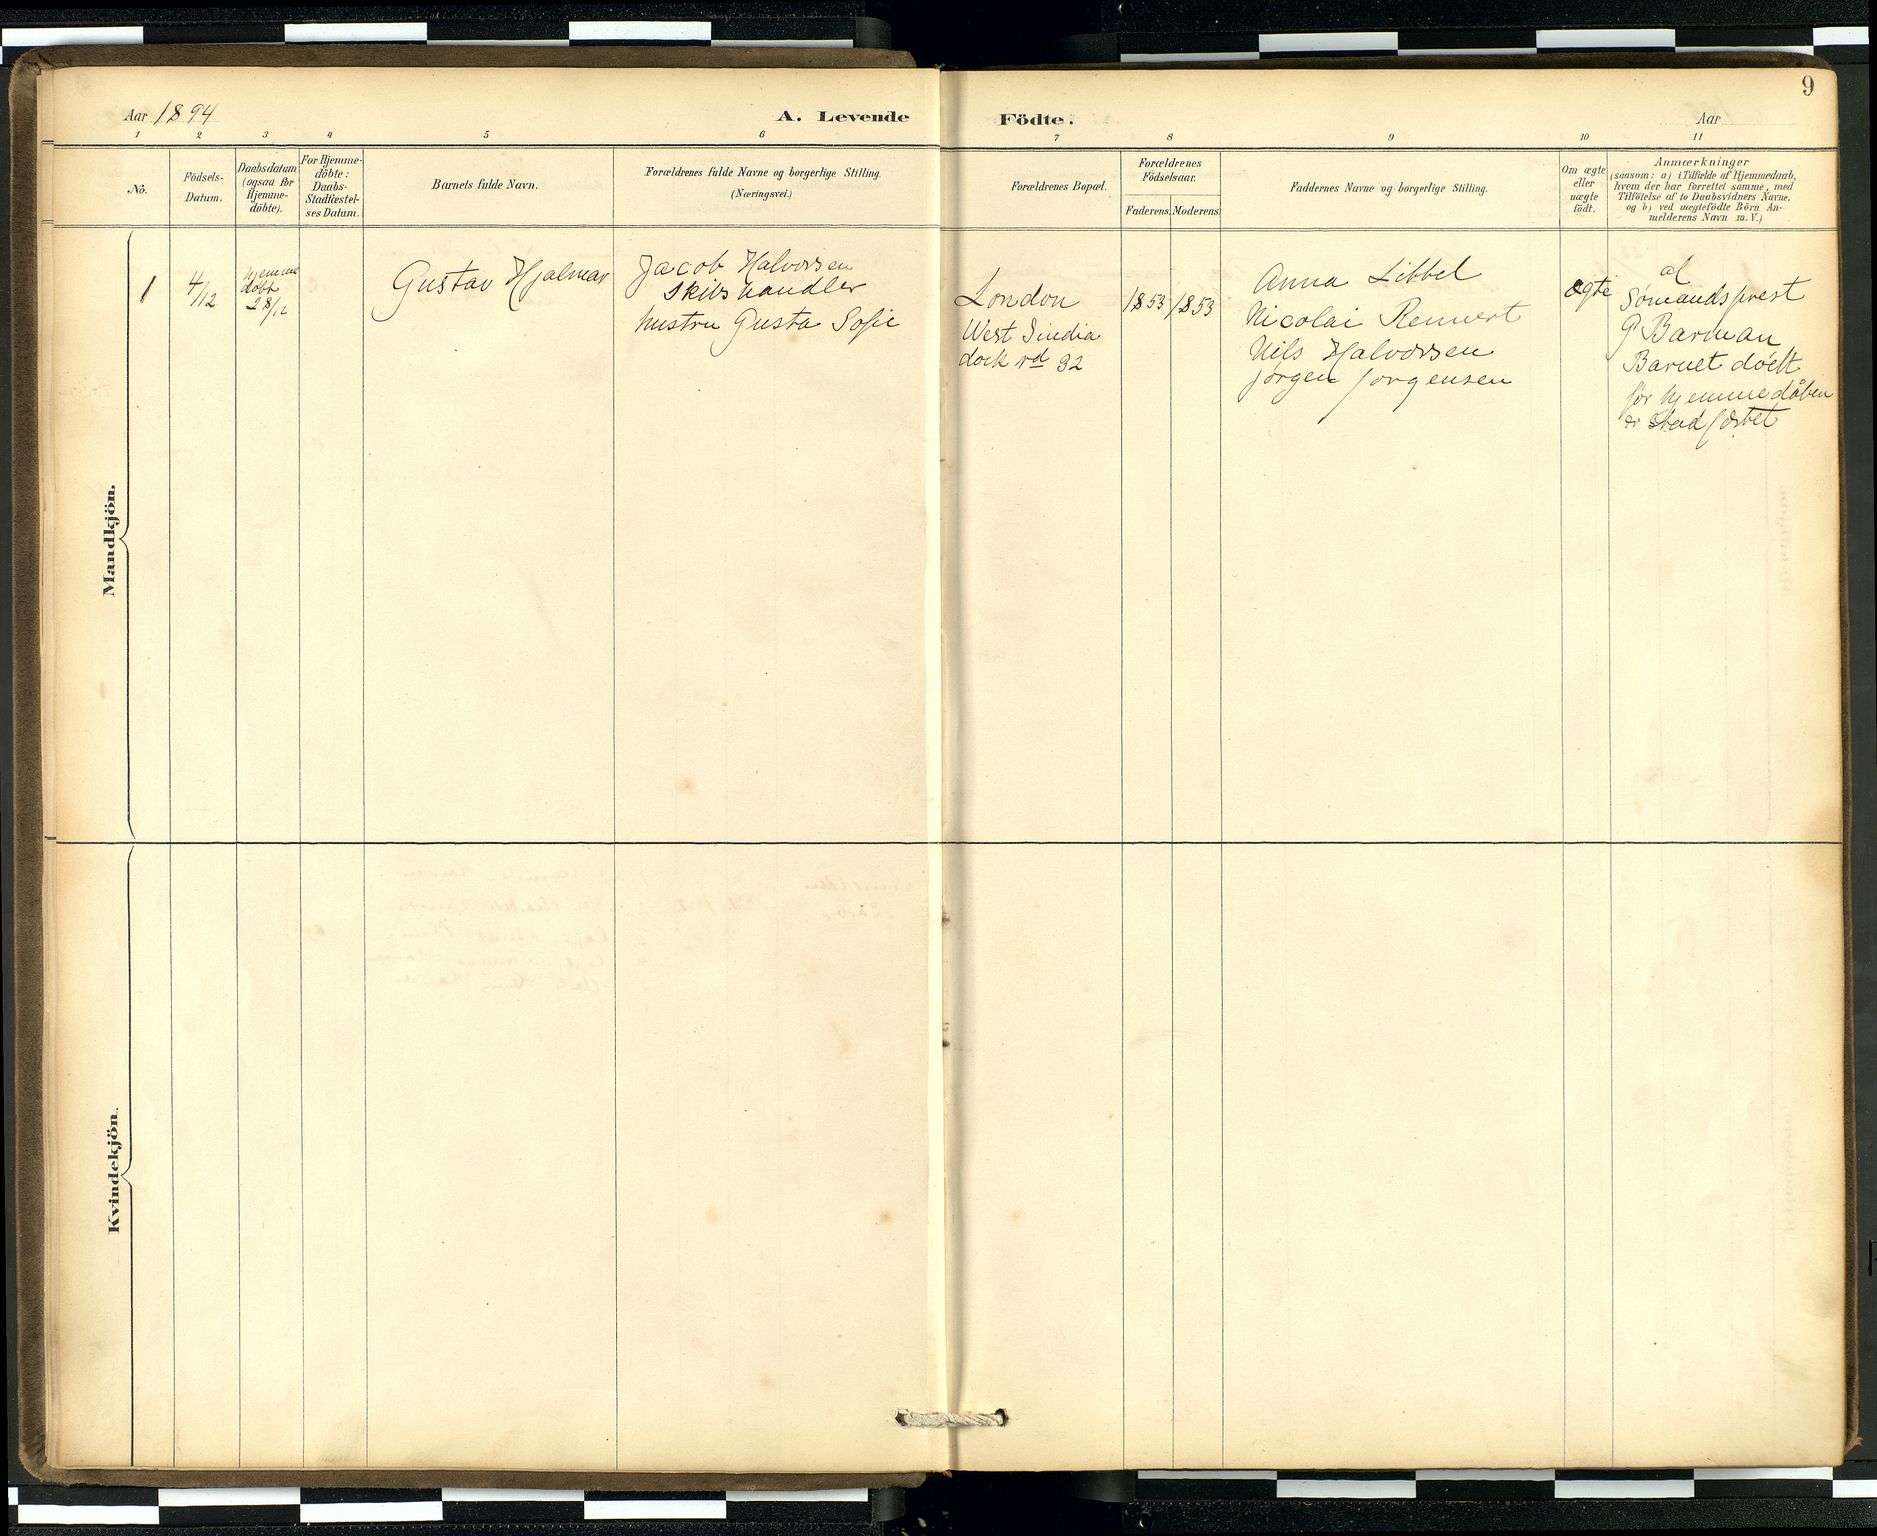 Aar 1894
A. Levende
Födte.
Aar
9
1 2 3 4 5 6 7 8 9 10 11
No.
Födsels-
Datum.
Daabsdatum
(ogsaa for
Hjemme-
döbte).
For Hjemme-
döbte:
Daabs-
Stadfæstel-
ses Datum.
Barnets fulde Navn.
Forældrenes fulde Navne og borgerlige Stilling.
(Næringsvei.)
Forældrenes Bopæl.
Forældrenes
Födselsaar.
Faderens.
Moderens.
Faddernes Navne og borgerlige Stilling.
Om ægte
eller
uægte
födt.
Anmærkninger
(saasom: a) i Tilfælde af Hjemmedaab,
hvem der har forrettet samme, med
Tilföielse af to Daabsvidners Navne.
og b) ved uægtefödte Börn An-
melderens Navn m. V.)
Mandkjön.
1
4/12
hjemme
døbt
28/12
Gustav Hjalmar
Jacob Halvorsen
Skibshandler
hustru Gusta Sofie
London
West India
dock rd 32
1853
1853
Anna Libbel
Nicolai Rennert
Nils Halvorsen
Jørgen Jørgensen
ægte
af
Sømandsprest
Barman
Barnet
før hjemmedåben
er
Kvindekjön.